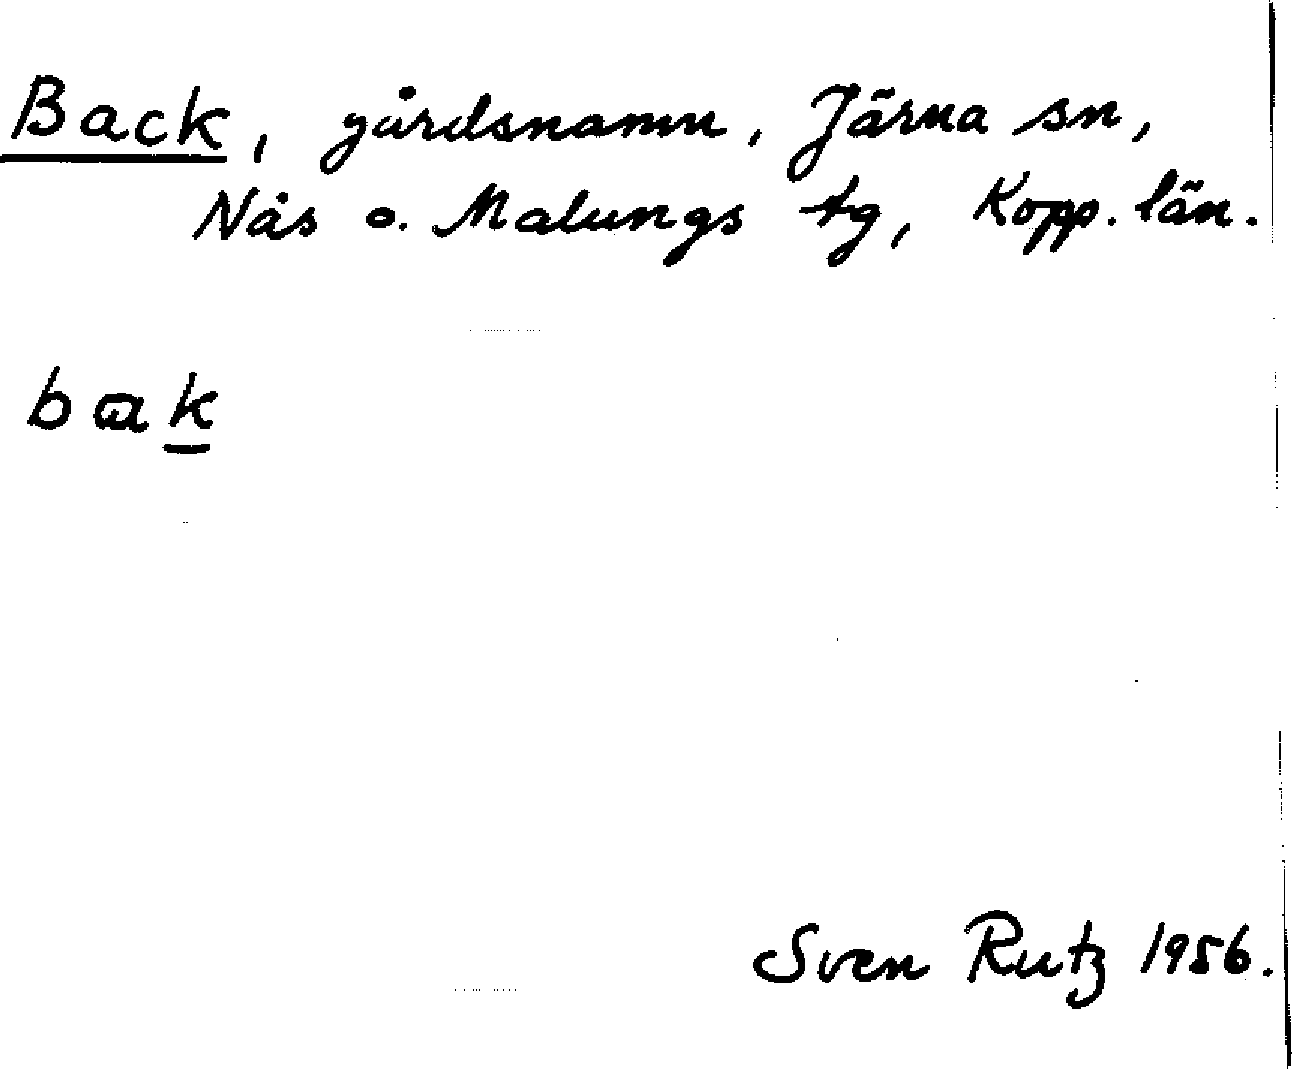 Back, gårdsnamn, Järna sn,
Nås o. Malungs tg, Kopp. län.
bak
Sven Rutz 1956.